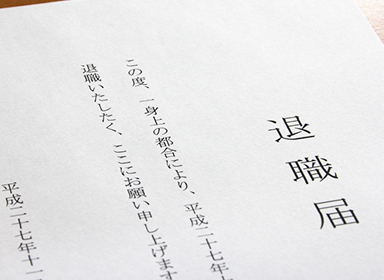 退職届
この度、一身上の都合により、平成二十七年
退職いたしたく、ここにお願い申し上げます
平成二十七年十